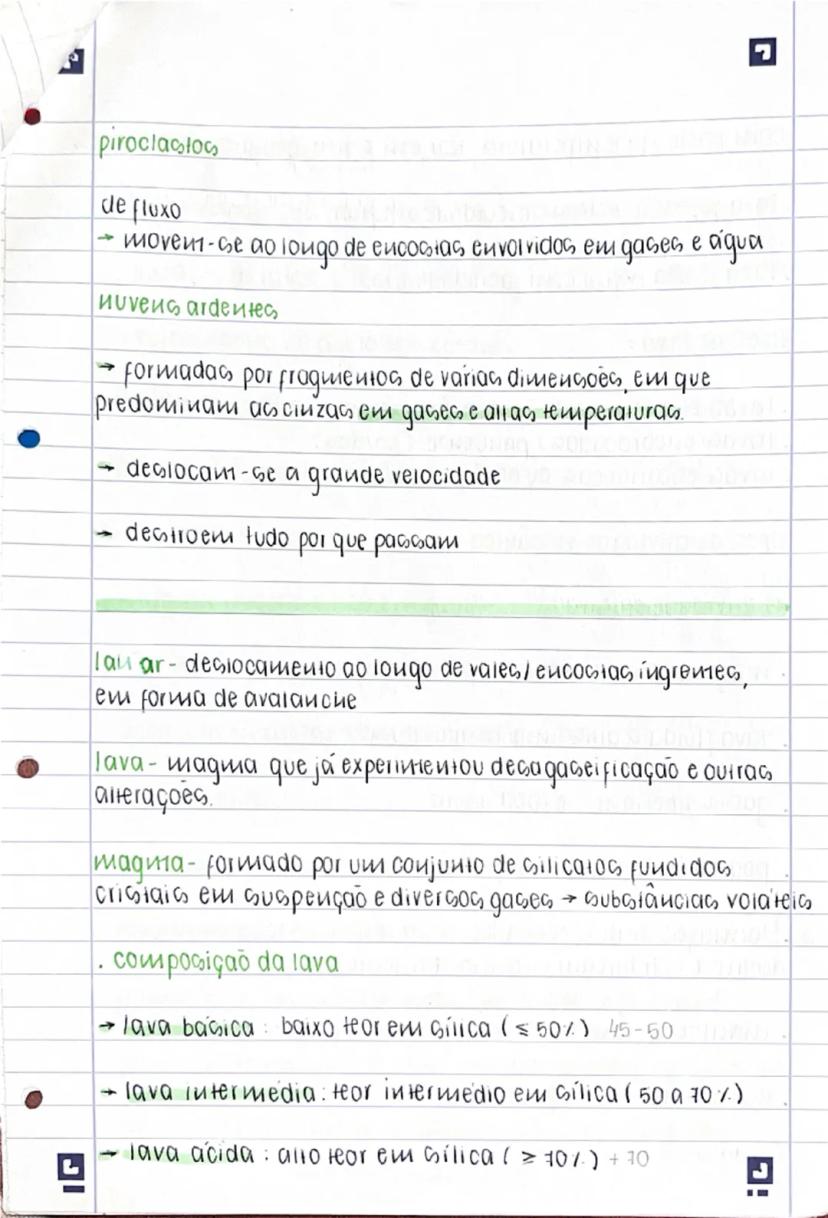 piroclastos
de fluxo
→ movem-se ao longo de encostas envolvidos em gases e água
nuvens ardentes
→ formadas por fragmentos de várias dimensões, em que
predominam as cinzas em gases e altas temperaturas.
→ deslocam-se a grande velocidade
→ destroem tudo por que passam
lahar - deslocamento ao longo de vales/encostas íngremes,
em forma de avalanche
lava - magma que já experimentou desagaseificação e outras
alterações.
magma - formado por um conjunto de silicatos fundidos
cristais em suspenção e diversos gases → substâncias voláteis
. composição da lava
→ lava básica : baixo teor em sílica (≤ 50%) 45-50
→ lava intermédia : teor intermédio em sílica (50 a 70%)
→ lava ácida : alto teor em sílica (≥ 70%) +70